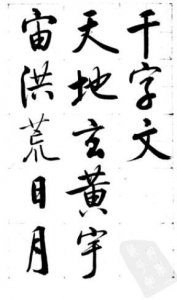 千字文
天地玄黃宇
宙洪荒日月